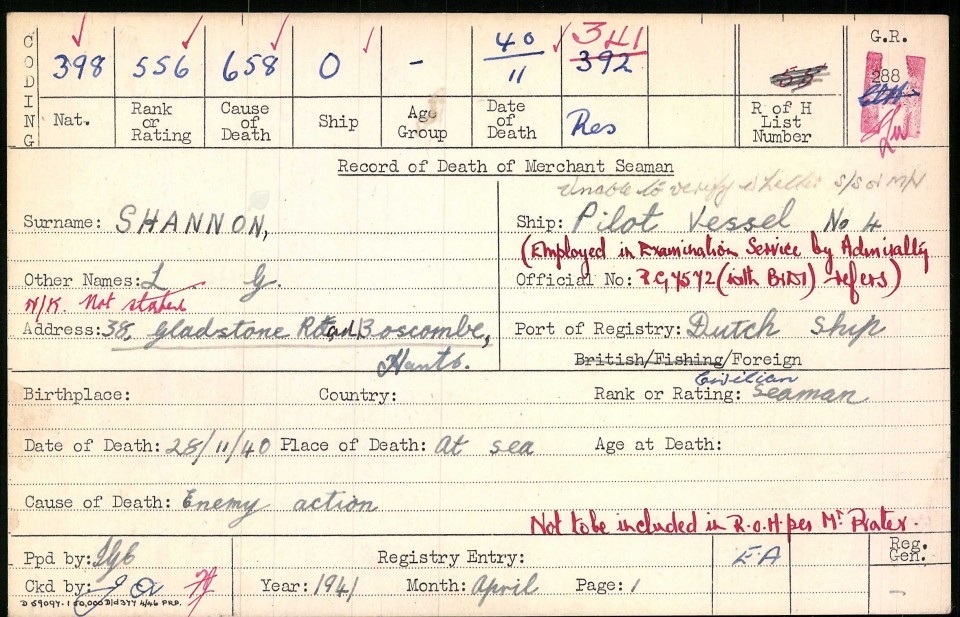 CODING
398 556 658 0 - 40/11 341 392 55 G.R. 288
Nat. Rank or Rating Cause of Death Ship Age Group Date of Death Res R of H List Number
Record of Death of Merchant Seaman
Unable to verify whether S/S or M/V
Surname: SHANNON, Ship: Pilot Vessel No 4
(Employed in Examination Service by Admiralty
Other Names: L G. Official No: (with BritM) refers)
N/K. Not stated
Address: 38, Gladstone Road, Boscombe, Port of Registry: Dutch Ship
Hants. British/Fishing/Foreign
Civilian
Birthplace: Country: Rank or Rating: Seaman
Date of Death: 28/11/40 Place of Death: At sea Age at Death:
Cause of Death: Enemy action
Not to be included in R.o.H per Mr Prater.
Ppd by: Registry Entry: EA Reg. Gen.
Ckd by: Year: 1941 Month: April Page: 1 -
D 59097-1 50,000 D/d377 4/46 PRP.